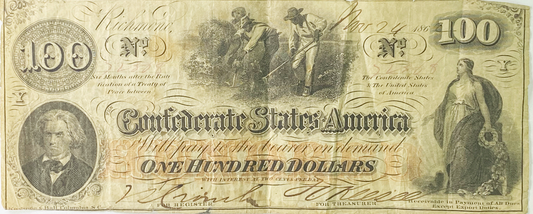 Richmond, Nov 24 186
100
Nº
Nº
100
Six Months after the Rati
fication of a Treaty of
Peace between
The Confederate States
& The United States
of America
Y
Y
Confederate States of America
Will pay to the bearer on demand
ONE HUNDRED DOLLARS
WITH INTEREST AT TWO CENTS PER DAY
FOR REGISTER
FOR TREASURER
Receivable in Payment of All Dues
Except Export Duties.